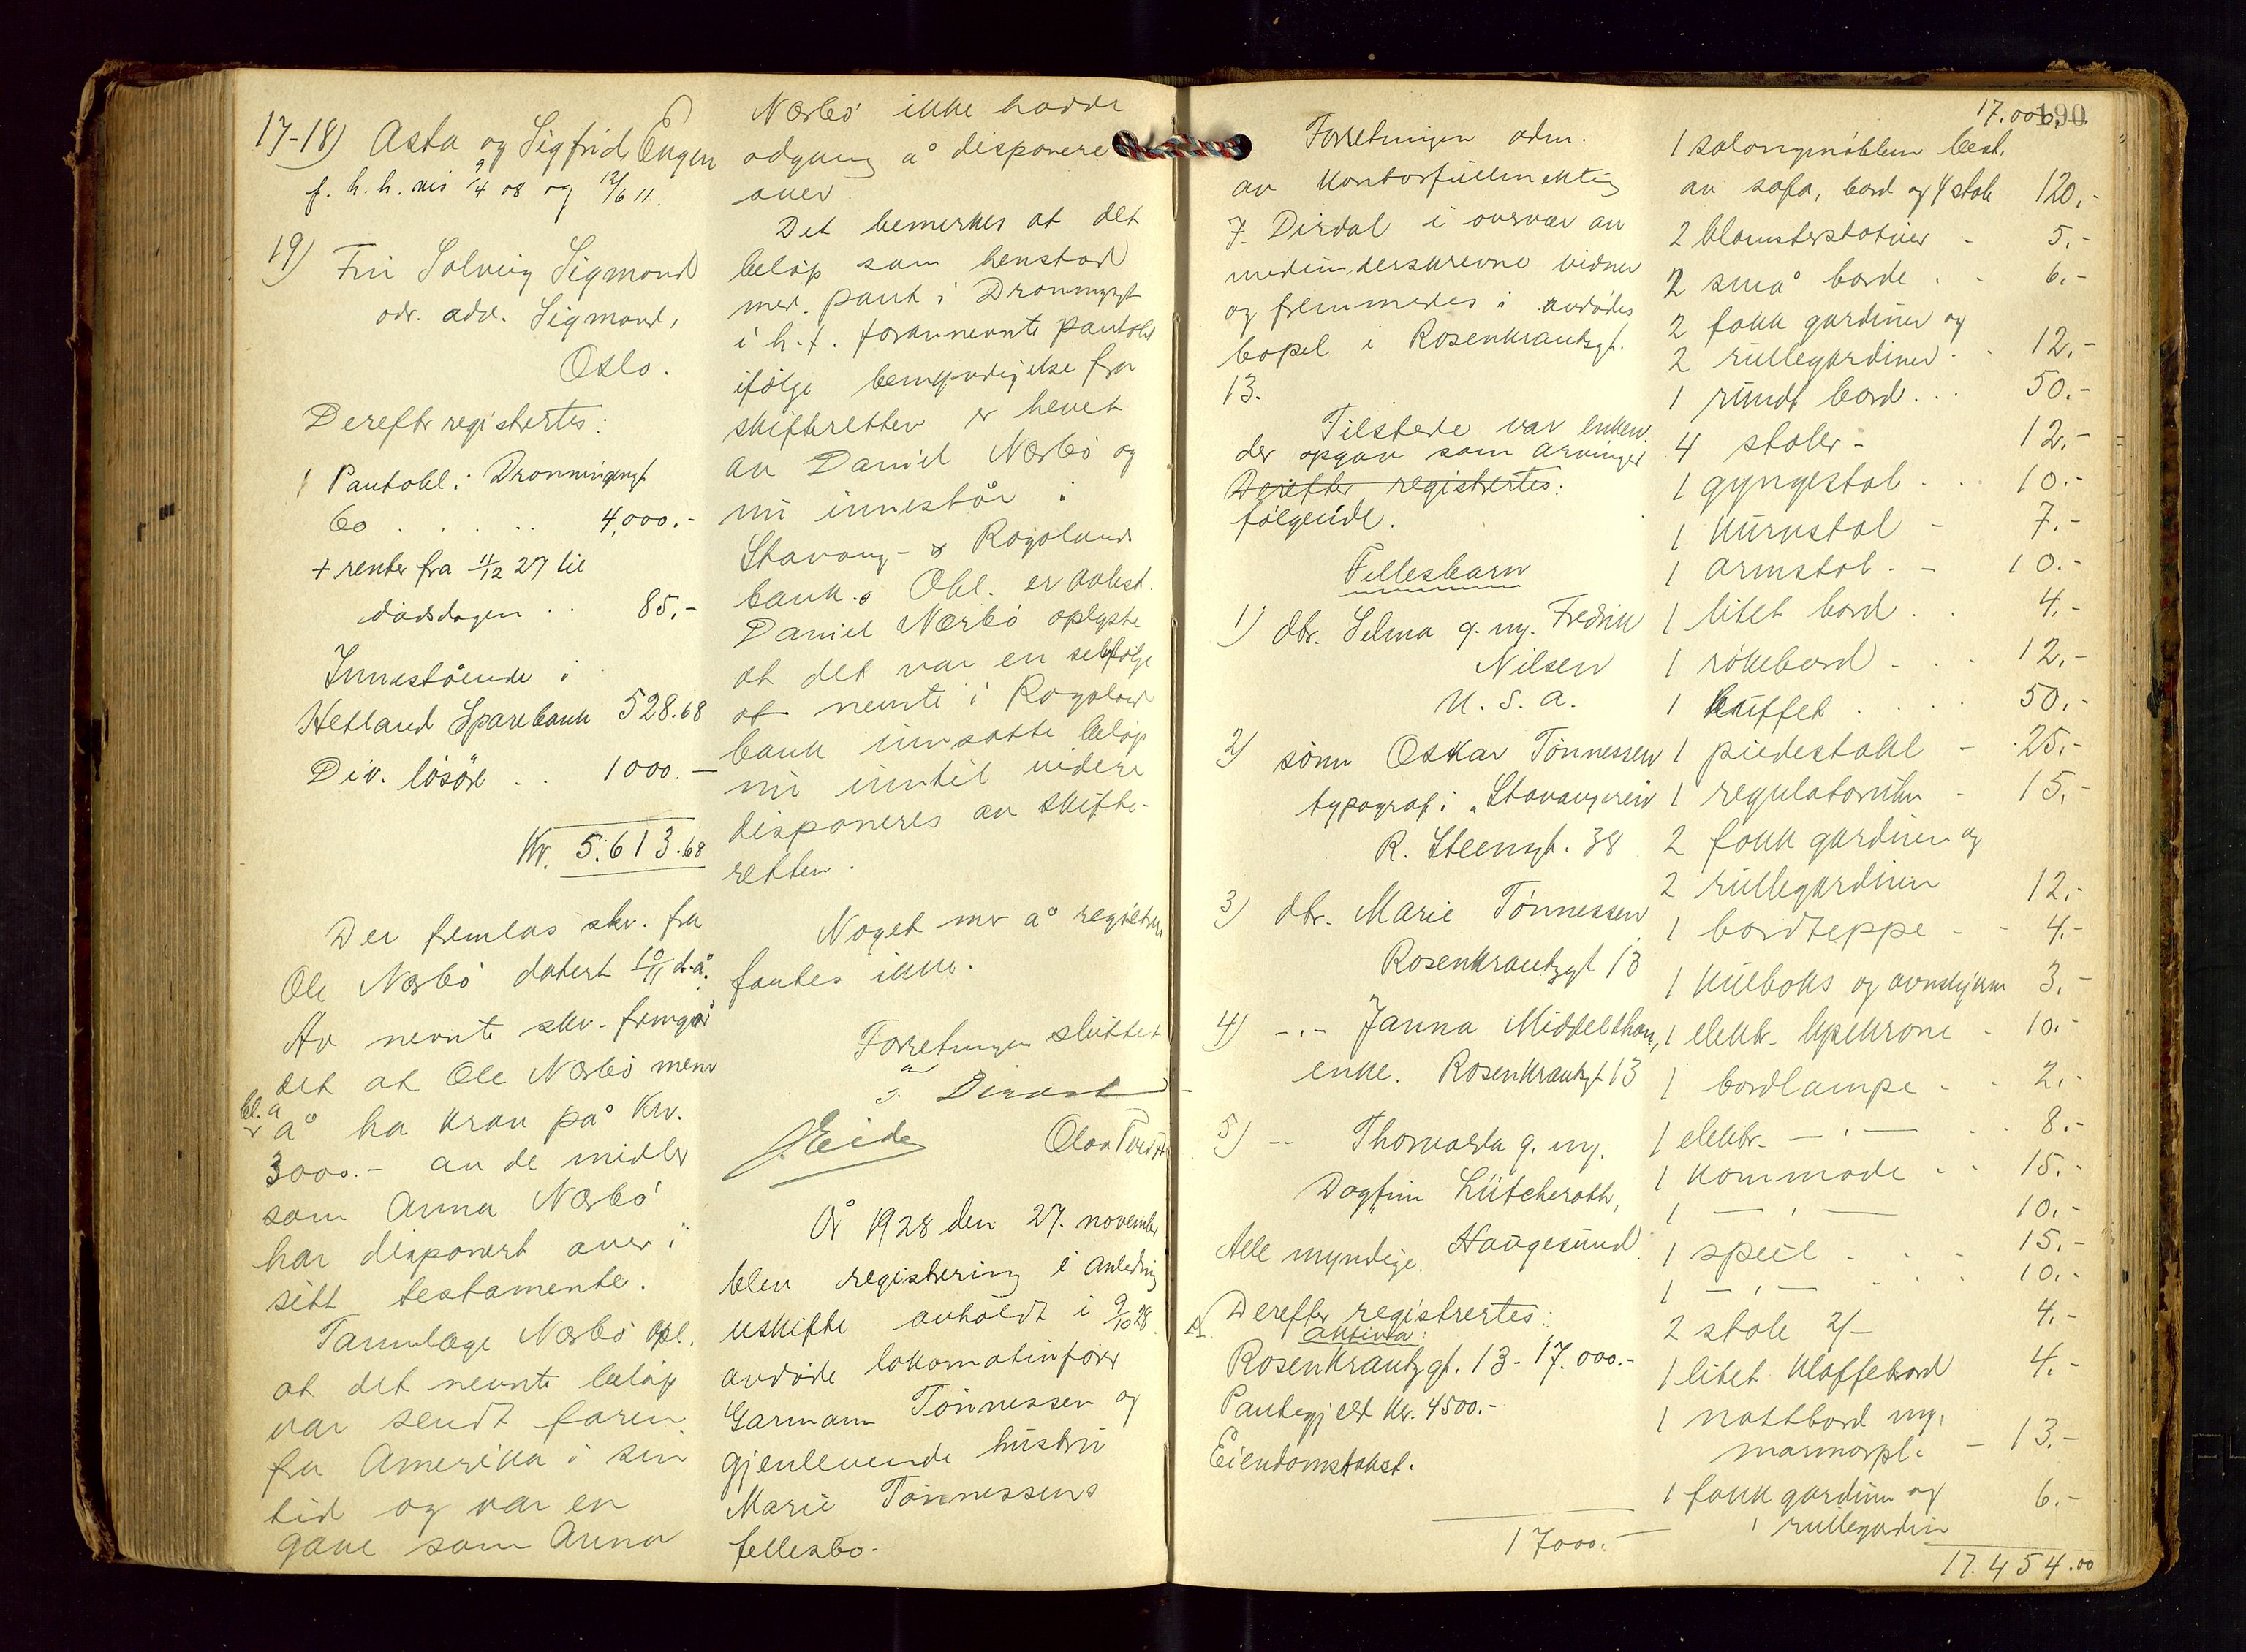 17-18) Asta og Sigfrid Engen
f. h. h. vis 9/4 08 og 12/6 11.
19) Fru Solveig Sigmond
adr. adv. Sigmond,
Oslo.
Derefter registrertes:
1 Pantobl. i Dronningensgt
60 . . . . . 4,000.-
+ renter fra 11/12 27 til
dødsdagen . . 85,-
Innestående i
Hetland Sparebank 528.68
Div. løsøre . . 1000.-
Kr. 5.613.68
Der fremlas skr. fra
Ole Nærbö datert 10/11 d.å.
Av nevnte skr. fremgår
det at Ole Nærbö mener
bl.a.
å ha krav på Kr.
3000.- av de midler
som Anna Nærbö
har disponert over i
sitt testamente.
Tannlæge Nærbö opl.
at det nevnte beløp
var sendt faren
fra Amerika i sin
tid og var en
gave som Anna
Nærbö ikke hadde
adgang å disponere
over.
Det bemerkes at det
beløp som henstod
med pant i Dronningsgt
i h.t. forannevnte pantobl
ifølge bemyndigelse fra
skifteretten er hevet
av Daniel Nærbö og
nu innestår i
Stavang- & Rogalands
bank. Obl. er avlest.
Daniel Nærbö oplyste
at det var en selvfølge
at nevnte i Rogaland
bank innsatte beløp
nu inntil videre
disponeres av skifte-
retten.
Noget mer å registrere
fantes ikke.
Forretningen sluttet
J. Dirdal
J. Eide Olav
År 1928 den 27. november
blev registrering i anledning
uskifte avholdt i 9/10 28
avdøde lokomotivfører
Garmann Tønnessen og
gjenlevende hustru
Marie Tønnessens
fellesbo.
190
Forretningen adm.
av kontorfullmektig
J. Dirdal i overvær av
medunderskrevne vidner
og fremmedes i avdødes
bopel i Rosenkrantzgt.
13.
Tilstede var enken
der opgav som arvinger
Derefter registrertes:
følgende.
Fellesbarn
1) dtr. Selma g.m. Fredrik
Nilsen
U. S. A.
2) sønn Oskar Tønnessen
typograf i "Stavangeren
R. Steensgt. 38
3) dtr. Marie Tønnessen,
Rosenkrantzgt 13
4) -.- Janna Middelthon,
enke. Rosenkrantzgt 13
5) -- Thomasta g. m.
Dagfinn Lütcherath,
Haugesund.
Alle myndige.
Derefter registrertes:
A. Aktiva:
Rosenkrantzgt. 13 - 17.000.-
Pantegjeld kr. 4500.-
Eiendomstakst.
17000.-
17.000.-
1 salongmøblem best.
av sofa, bord og 4 stole 120,-
2 blomsterstativer - 5.-
2 små borde . . 6.-
2 fakk gardiner og
2 rullegardiner . . 12,-
1 rundt bord . . . 50.-
4 stoler - 12,-
1 gyngestol . . 10.-
1 kurvstol - 7.-
1 armstol . - 10.-
1 litet bord . . 4.-
1 røkebord . . - 12,-
1 buffet . . . . 50.-
1 piedestahl - 25,-
1 regulatoruhr - 15,-
2 fakk gardiner og
2 rullegardiner 12,-
1 bordteppe - - 4.-
1 kulboks og ovnskjerm 3.-
1 elektr. lysekrone - 10.-
1 bordlampe - - 2.-
1 elektr. - . - . . 8.-
1 kommode - - 15.-
1 - . - 10.-
1 speil . . . 15.-
1 - . - . . . 10.-
2 stole 2/- 4.-
1 litet klaffebord 4.-
1 nattbord m.
marmorpl. - 13.-
1 fakk gardiner og 6.-
1 rullegardin
17.454.00